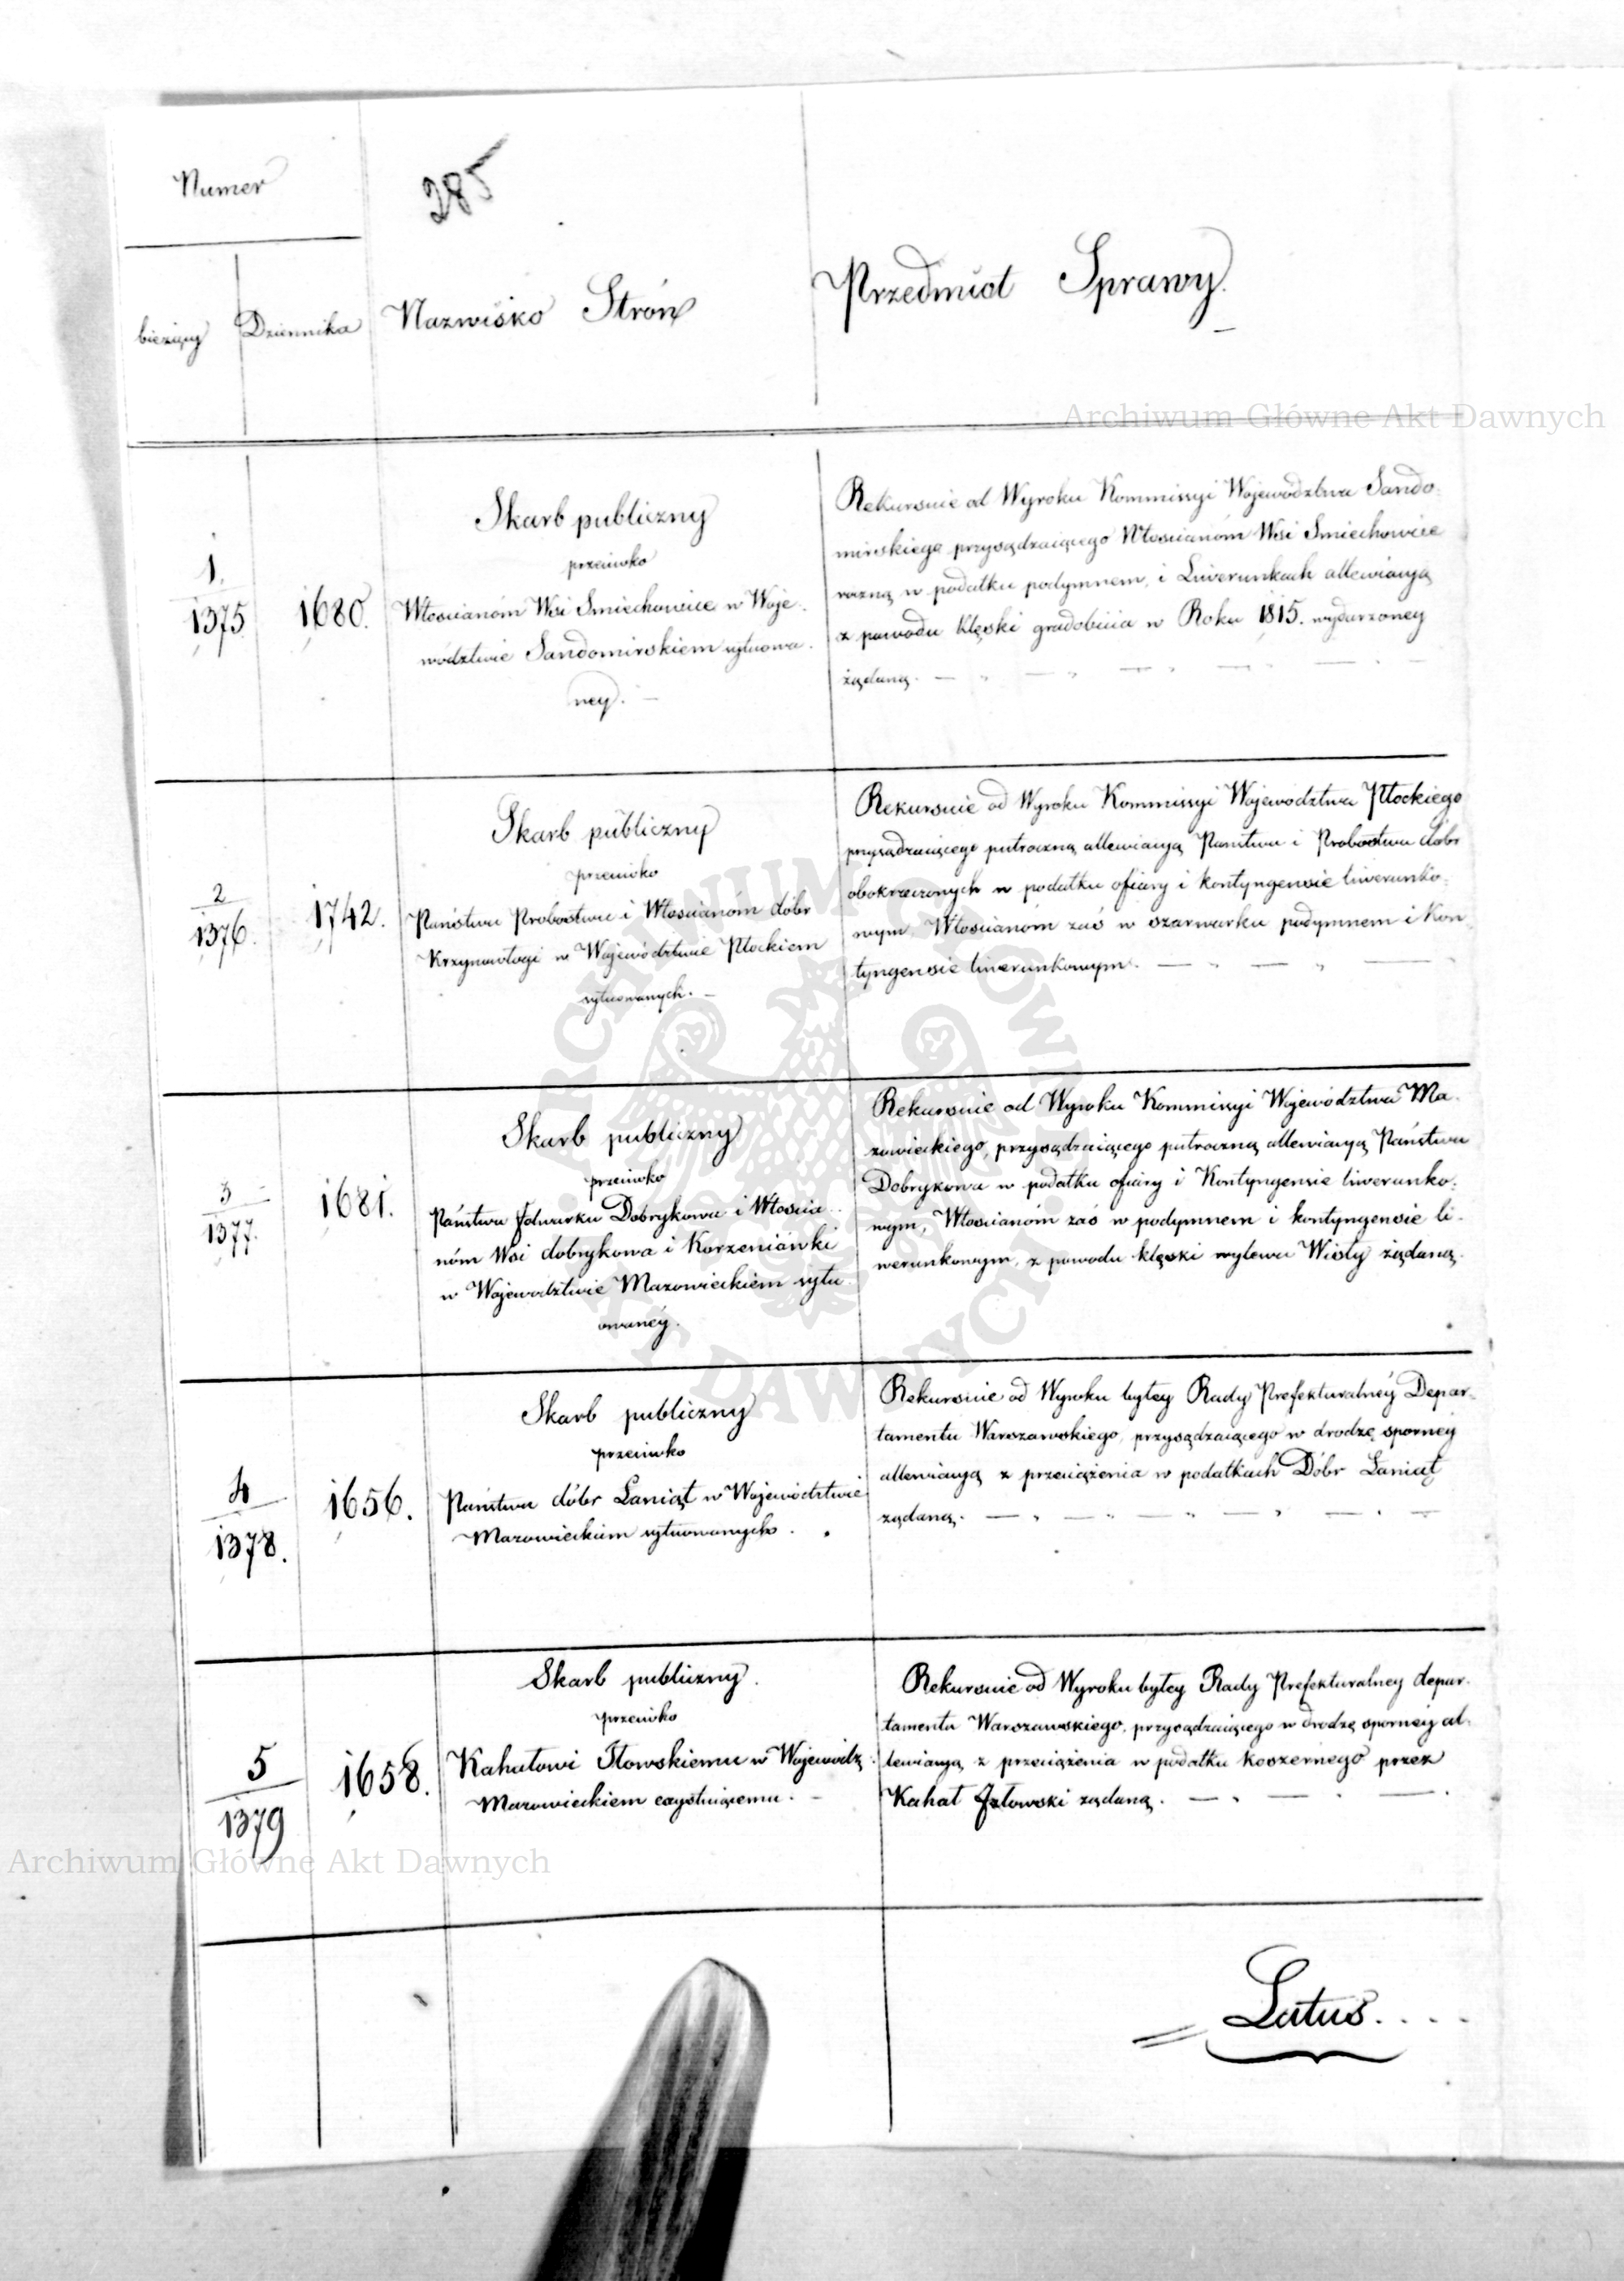 Numer
285
bieżący Dziennika Nazwisko Strón Przedmiot Sprawy.
Archiwum Główne Akt Dawnych
1.
1375
1680.
Skarb publiczny
przeciwko
Włoscianóm Wsi Smiechowice w Woje.
wództwie Sandomirskiem sytuowa.
ney.
Rekursuie od Wyroku Kommissyi Województwa Sando.
mirskiego przysądzaiącego Włościanóm Wsi Smiechowice
w podatku podymnem, i Liwerunkach allewiacyą
z powodu klęski gradobicia w Roku 1815. wydarzoney
żądaną.
2
1376.
1742.
Skarb publiczny
przeciwko
Państwu Probostwu i Włoscianóm dóbr
Krzynowłogi w Województwie Płockiem
sytuowanych.
Rekursuie od Wyroku Kommissyi Województwa Płockiego
przysądzaiącego putroczną allewiacyą Państwu i Probostwu dóbr
obokrzeczonych w podatku ofiary i kontyngensie liwerunko.
wym, Włoscianóm zaś w szarwarku podymnem i Kon
tyngensie liwerunkowym.
3
1377.
1681.
Skarb publiczny
przeciwko
Państwu folwarku Dobrykowa i Włoscia.
nóm Wsi dobrykowa i Korzeniówki
w Województwie Mazowieckiem sytu
owanéy.
Rekursuie od Wyroku Kommissyi Województwa Ma.
zowieckiego, przysądzaiącego putroczną allewiacyą Państwu
Dobrykowa w podatku ofiary i Kontyngensie liwerunko.
wym, Włoscianóm zaś w podymnem i kontyngensie li.
werunkowym, z powodu klęski wylewu Wisły żądaną.
4
1378.
1656.
Skarb publiczny
przeciwko
Państwu dóbr Laniąt w Województwie
Mazowieckiem sytuowanych.
Rekursuie od Wyroku byłey Rady Prefekturalnéy Depar.
tamentu Warszawskiego, przysądzaiącego w drodze sporney
allewiacyą z przeciążenia w podatkach Dóbr Laniąt
żądaną.
5
1379
1658.
Skarb publiczny.
przeciwko
Kahałowi Iłowskiemu w Wojewódz.
Mazowieckiem exystuiącemu.
Rekursuie od Wyroku byłey Rady Prefekturalney depar.
tamentu Warszawskiego, przysądzaiącego w drodze sporney al.
lewiacyą z przeciążenia w podatku koszernego przez
Kahał Iłowski żądaną.
Archiwum Główne Akt Dawnych
Latus....
ARCHIWUM GŁÓWNE AKT DAWNYCH